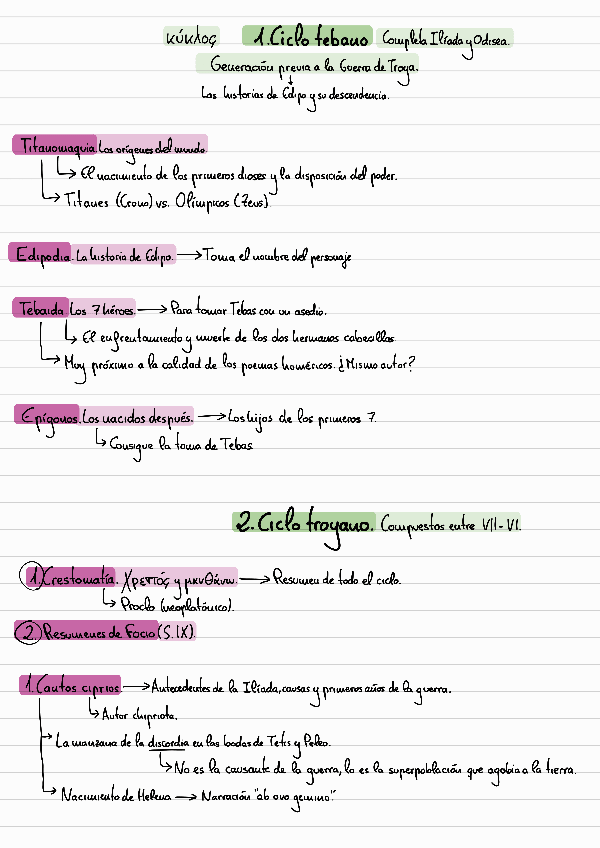 κύκλος 1. Ciclo tebano Completa Ilíada y Odisea.
Generación previa a la Guerra de Troya.
Las historias de Edipo y su descendencia.
Titanomaquia. Los orígenes del mundo
El nacimiento de los primeros dioses y la disposición del poder.
Titanes (Crono) vs. Olímpicos (Zeus).
Edipodia. La historia de Edipo. → Toma el nombre del personaje
Tebaida. Los 7 héroes. → Para tomar Tebas con un asedio.
El enfrentamiento y muerte de los dos hermanos cabecillas.
Muy próximo a la calidad de los poemas homéricos. ¿Mismo autor?
Epígonos. Los nacidos después. → Los hijos de los primeros 7.
Consigue la toma de Tebas.
2. Ciclo troyano. Compuestos entre VII-VI.
1. Crestomatía. χρεπτός y μανθάνω. → Resumen de todo el ciclo.
Proclo (neoplatónico).
2. Resúmenes de Focio (S. IX).
1. Cantos ciprios → Antecedentes de la Ilíada, causas y primeros años de la guerra.
Autor chipriota.
La manzana de la discordia en las bodas de Tetis y Peleo.
No es la causante de la guerra, lo es la superpoblación que agobia a la tierra.
Nacimiento de Helena → Narración "ab ovo gemino".